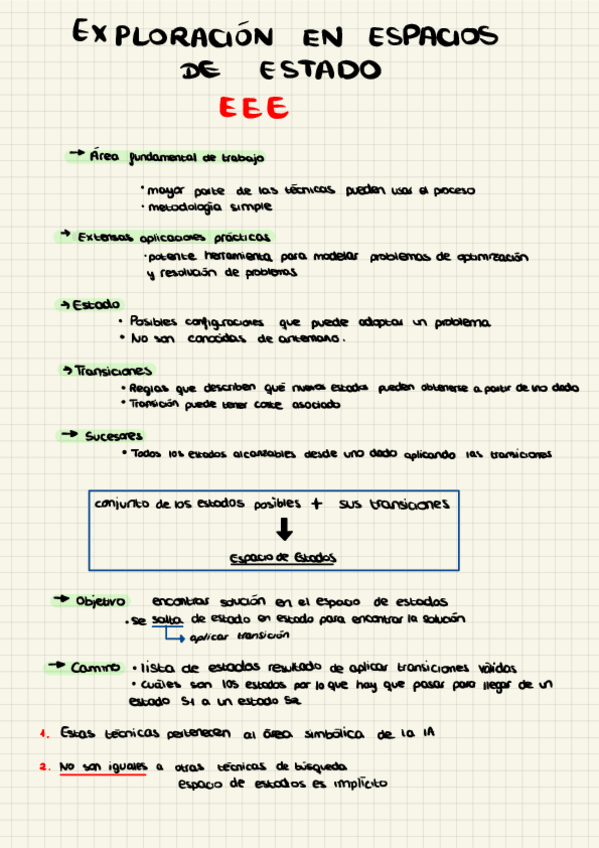 EXPLORACIÓN EN ESPACIOS
DE ESTADO
EEE
→ Área fundamental de trabajo
• mayor parte de las técnicas pueden usar el proceso
• metodología simple
→ Extensas aplicaciones prácticas
• potente herramienta para modelar problemas de optimización
y resolución de problemas
→ Estado
• Posibles configuraciones que puede adoptar un problema
• No son conocidas de antemano.
→ Transiciones
• Reglas que describen qué nuevos estados pueden obtenerse a partir de uno dado
• Transición puede tener coste asociado
→ Sucesores
• Todos los estados alcanzables desde uno dado aplicando las transiciones
conjunto de los estados posibles + sus transiciones
Espacio de Estados
→ Objetivo encontrar solución en el espacio de estados
• se salta de estado en estado para encontrar la solución
aplicar transición
→ Camino • lista de estados resultado de aplicar transiciones válidas
• cuáles son los estados por lo que hay que pasar para llegar de un
estado S1 a un estado S2
1. Estas técnicas pertenecen al área simbólica de la IA
2. No son iguales a otras técnicas de búsqueda
espacio de estados es implícito